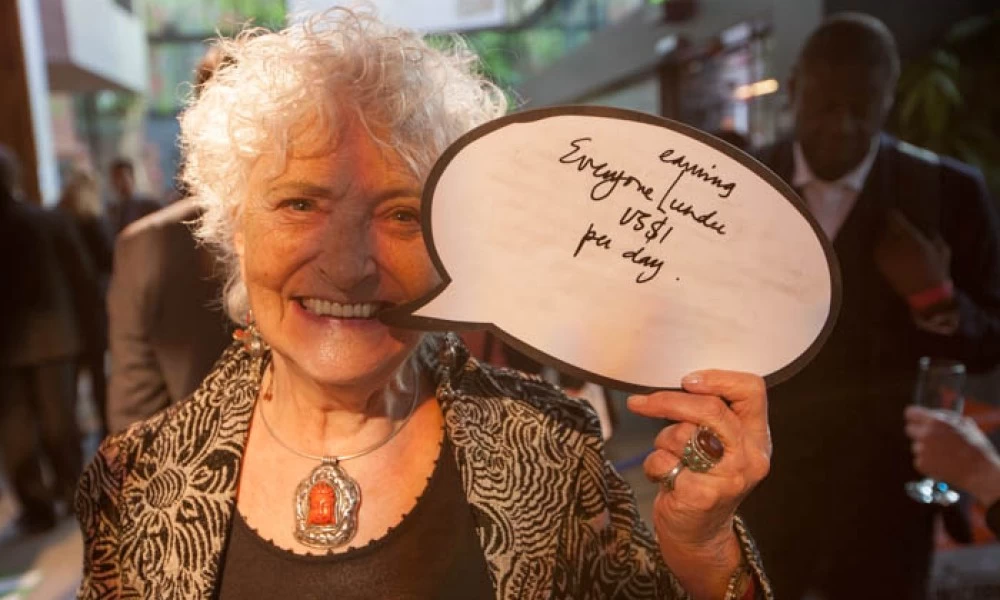 Everyone earning under
US$1
per day.